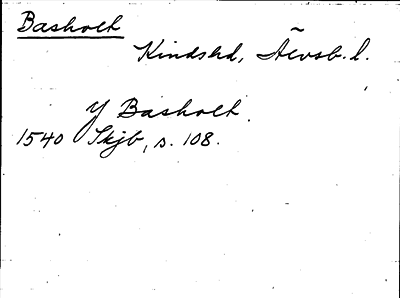 Basholt
Kindshd, Älvsb. l.
Y Basholt.
1540 Skjb, s. 108.